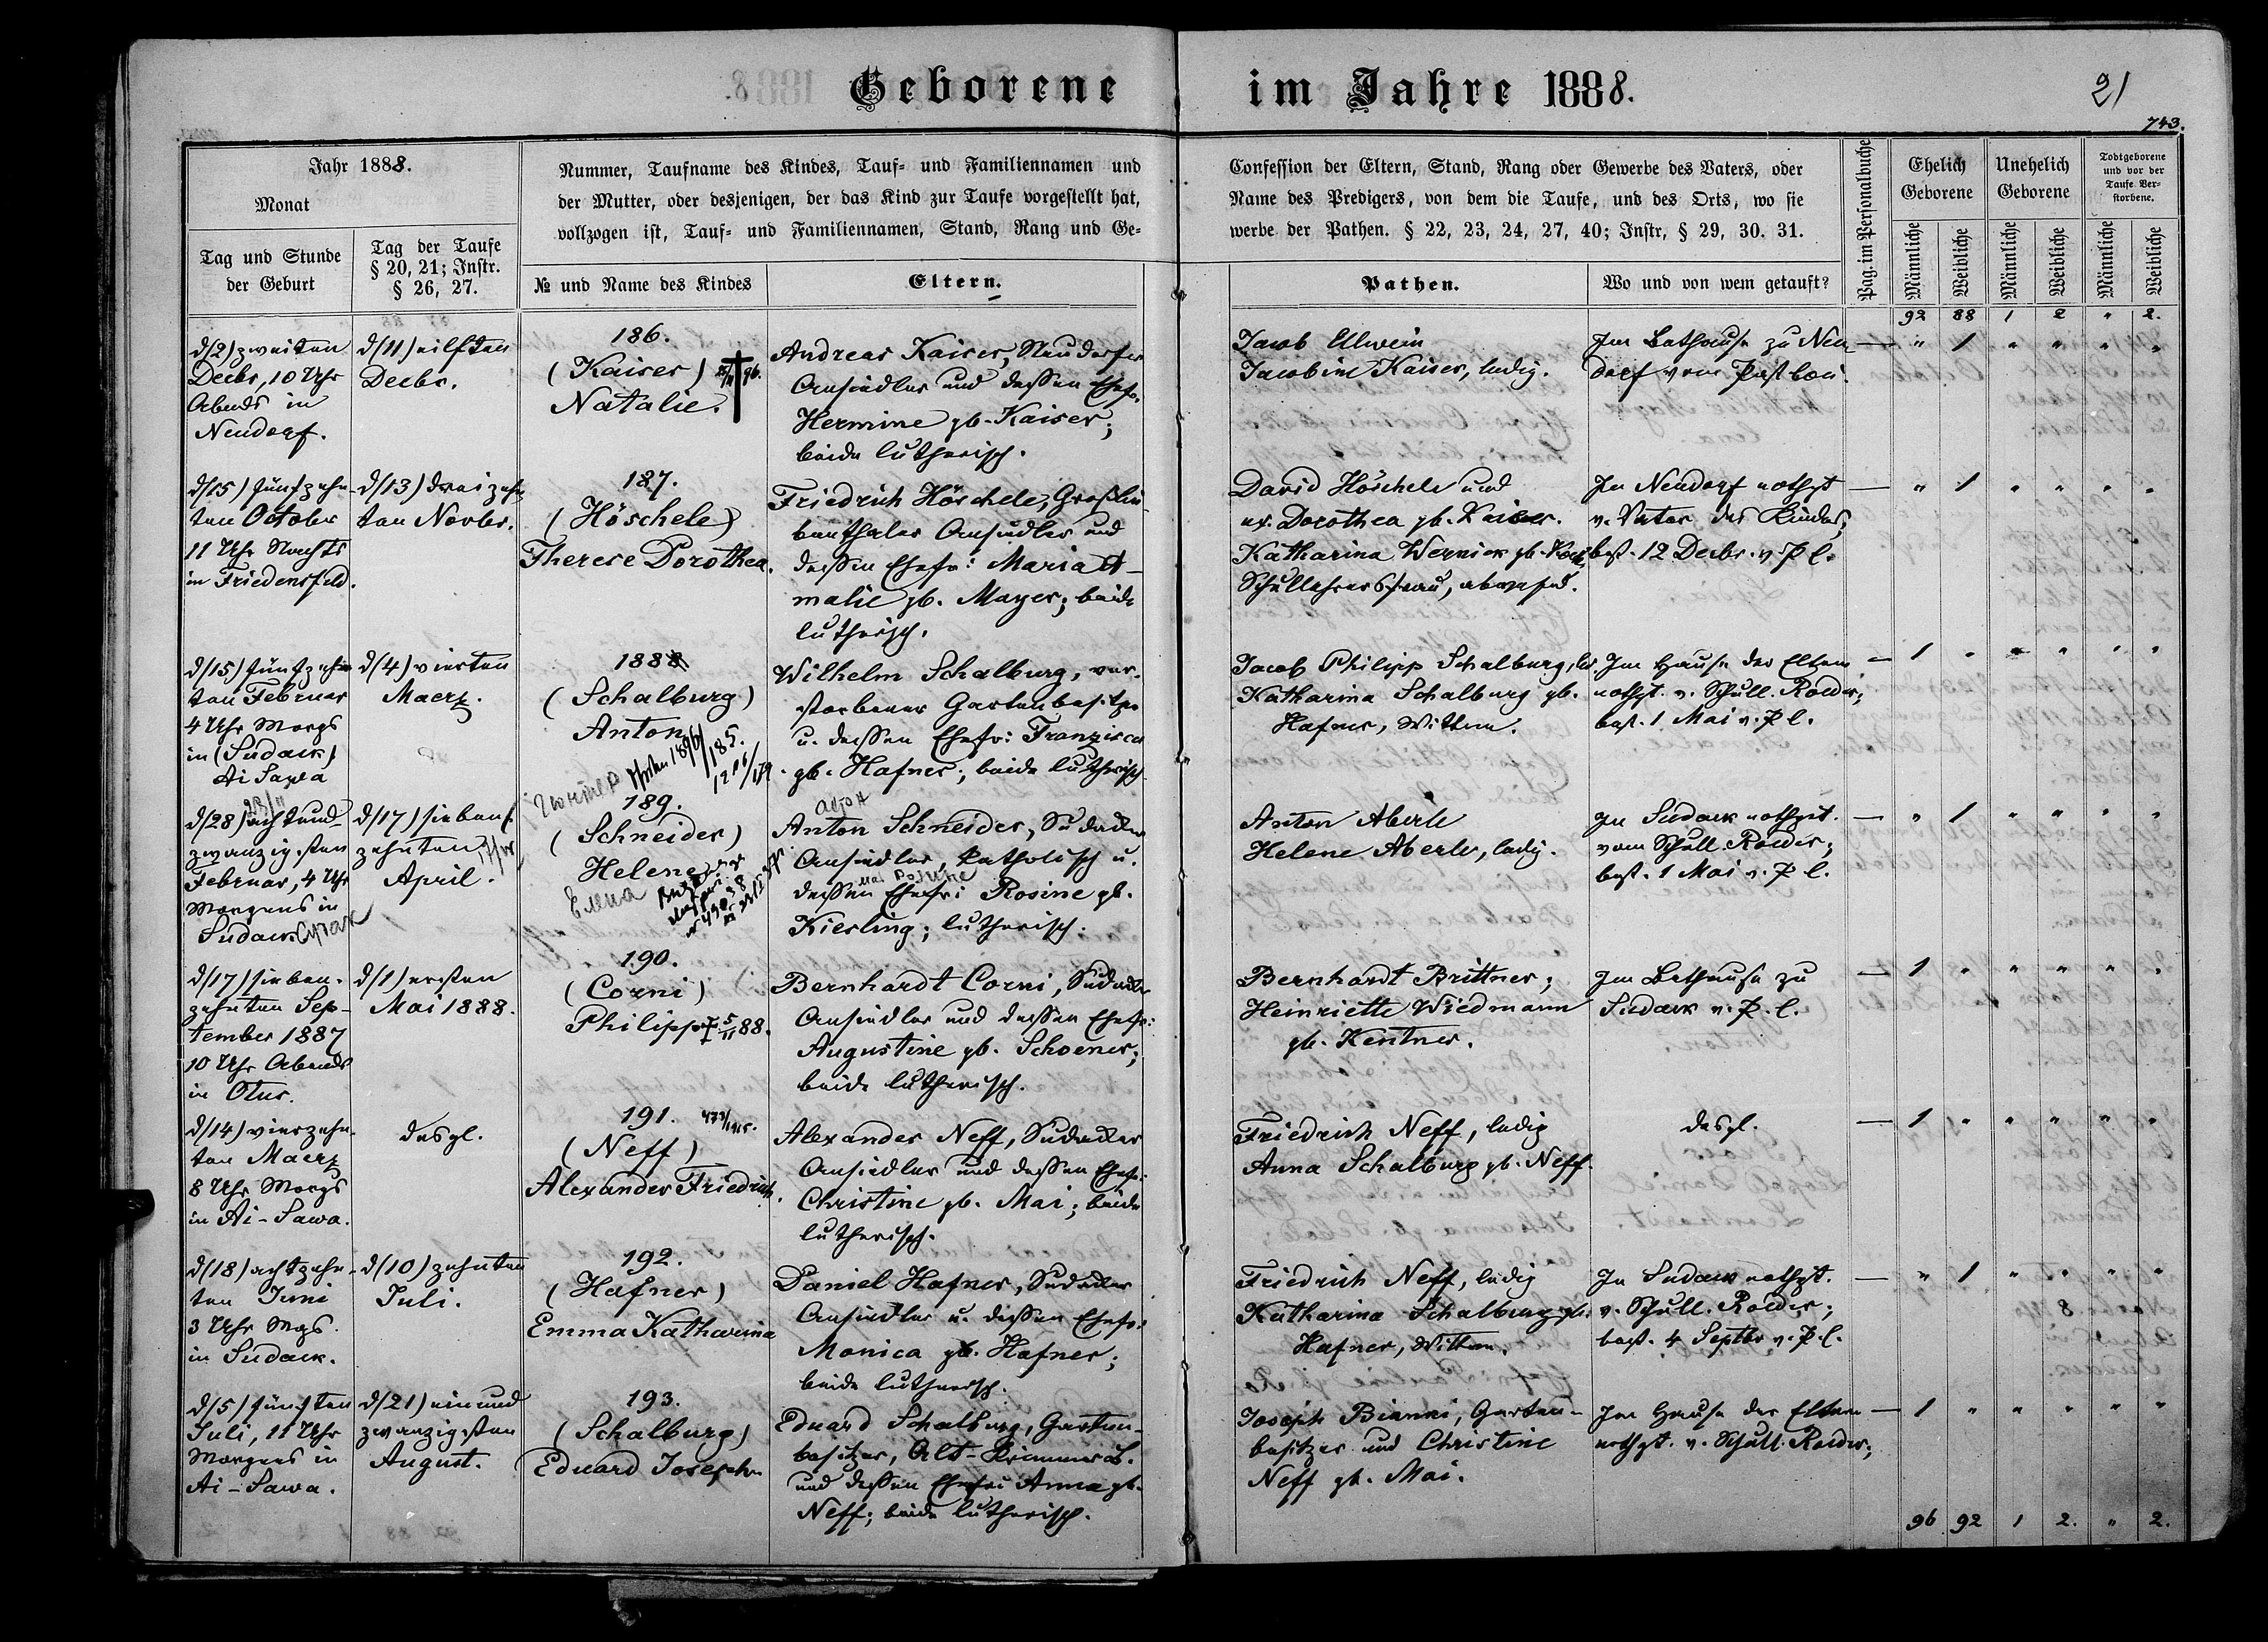 Geborene im Jahre 1888.
21
743.
Jahr 1888.
Monat
Tag und Stunde
der Geburt
Tag der Taufe
§ 20, 21; Instr.
§ 26, 27.
Nummer, Taufname des Kindes, Tauf- und Familiennamen und
der Mutter, oder desjenigen, der das Kind zur Taufe vorgestellt hat,
vollzogen ist, Tauf- und Familiennamen, Stand, Rang und Ge-
№ und Name des Kindes
Eltern.
Confession der Eltern, Stand, Rang oder Gewerbe des Vaters, oder
Name des Predigers, von dem die Taufe, und des Orts, wo sie
werbe der Pathen. § 22, 23, 24, 27, 40; Instr, § 29, 30. 31.
Pathen.
Wo und von wem getauft?
Pag. im Personalbuche
Ehelich
Geborene
Unehelich
Geborene
Todtgeborene
und vor der
Taufe Ver-
storbene.
Männliche
Weibliche
Männliche
Weibliche
Männliche
Weibliche
92 88 1 2 " 2.
d/(2) zweiten
Decbr, 10 Uhr
Abends in
Neudorf.
d/(11) eilften
Decbr.
186.
(Kaiser)
Natalie.
Andreas Kaiser, Neudorfer
Ansiedler und dessen Ehefr.
Hermine gb. Kaiser;
beide lutherisch.
Jacob Ullwein
Jacobine Kaiser, ledig.
Im Bethause zu Neu-
dorf vom Past. loci.
— " 1 " " " "
d/(15) fünfzehn-
ten October
11 Uhr Nachts
in Friedensfeld.
d/(13) dreizehn-
ten Novbr.
187.
(Höschele)
Therese Dorothea.
Friedrich Höschele, Großlie-
benthaler Ansiedler und
dessen Ehefr: Maria A-
malie gb. Mayer; beide
lutherisch.
David Höschele und
ux. Dorothea gb. Kaiser.
Katharina Wernick gb. Koch,
Schullehrersfrau, abwesend.
In Neudorf nothgt
v. Vater des Kindes;
best. 12 Decbr. v. P. l.
— " 1 " " " "
d/(15) fünfzehn-
ten Februar
4 Uhr Morgs
in (Sudack)
Ai Sawa
d/(4) vierten
Maerz.
188
(Schalburg)
Anton
Wilhelm Schalburg, ver-
storbener Gartenbesitzer
u. dessen Ehefr: Franzisca
gb. Hafner; beide lutherisch
Jacob Philipp Schalburg, led.
Katharina Schalburg gb.
Hafner, Wittwe.
Im Hause der Eltern
nothgt. v. Schull. Roeder;
best. 1 Mai v. P. l.
— 1 " " " " "
d/(28) achtund-
zwanzigsten
Februar, 4 Uhr
Morgens in
Sudack Судак
d/(17) sieben-
zehnten
April.
189.
(Schneider)
Helene
Елена
Anton Schneider, Sudacker
Ansiedler, katholisch u.
dessen Ehefr: Rosine gb.
Kiesling; lutherisch.
Anton Aberle
Helene Aberle, ledig.
In Sudack nothgt.
vom Schull. Roeder;
best. 1 Mai v. P. l.
— " 1 " " " "
d/(17) sieben-
zehnten Sep-
tember 1887
10 Uhr Abends
in Otus.
d/(1) ersten
Mai 1888.
190.
(Corni)
Philipp † 5/11 88.
Bernhardt Corni, Sudacker
Ansiedler und dessen Ehefr:
Augustine gb. Schoener;
beide lutherisch.
Bernhardt Brittner;
Heinriette Wiedmann
gb. Kentner.
Im Bethause zu
Sudack v. P. l.
— 1 " " " " "
d/(14) vierzehn-
ten Maerz
8 Uhr Morgs
in Ai-Sawa.
desgl.
191.
(Neff)
Alexander Friedrich.
Alexander Neff, Sudacker
Ansiedler und dessen Ehefr:
Christine gb. Mai; beide
lutherisch.
Friedrich Neff, ledig
Anna Schalburg gb. Neff.
desgl.
— 1 " " " " "
d/(18) achtzehn-
ten Juni
3 Uhr Mgs.
in Sudack.
d/(10) zehnten
Juli.
192.
(Hafner)
Emma Katharina
Daniel Hafner, Sudacker
Ansiedler u. dessen Ehefr:
Monica gb. Hafner;
beide lutherisch.
Friedrich Neff, ledig
Katharina Schalburg gb.
Hafner, Wittwe.
In Sudack nothgt.
v. Schull. Roeder;
best. 4 Septbr v. P. l.
— " 1 " " " "
d/(5) fünften
Juli, 11 Uhr
Morgens in
Ai-Sawa.
d/(21) einund
zwanzigsten
August.
193.
(Schalburg)
Eduard Joseph
Eduard Schalburg, Garten-
besitzer, Alt-
und dessen Ehefr: Anna gb.
Neff; beide lutherisch.
Joseph Bianki, Garten-
besitzer und Christine
Neff gb. Mai.
Im Hause der Eltern
nothgt. v. Schull. Roeder;
— 1 " " " " "
96 92 1 2. " 2.